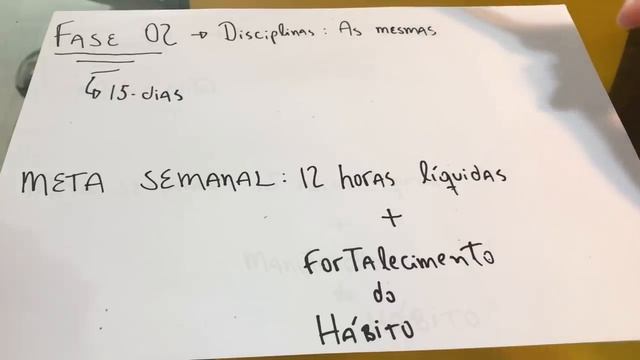 FASE 02 → Disciplinas: As mesmas
↳ 15-dias
META SEMANAL: 12 horas líquidas
+
forTAlecimento
do
HÁBITO